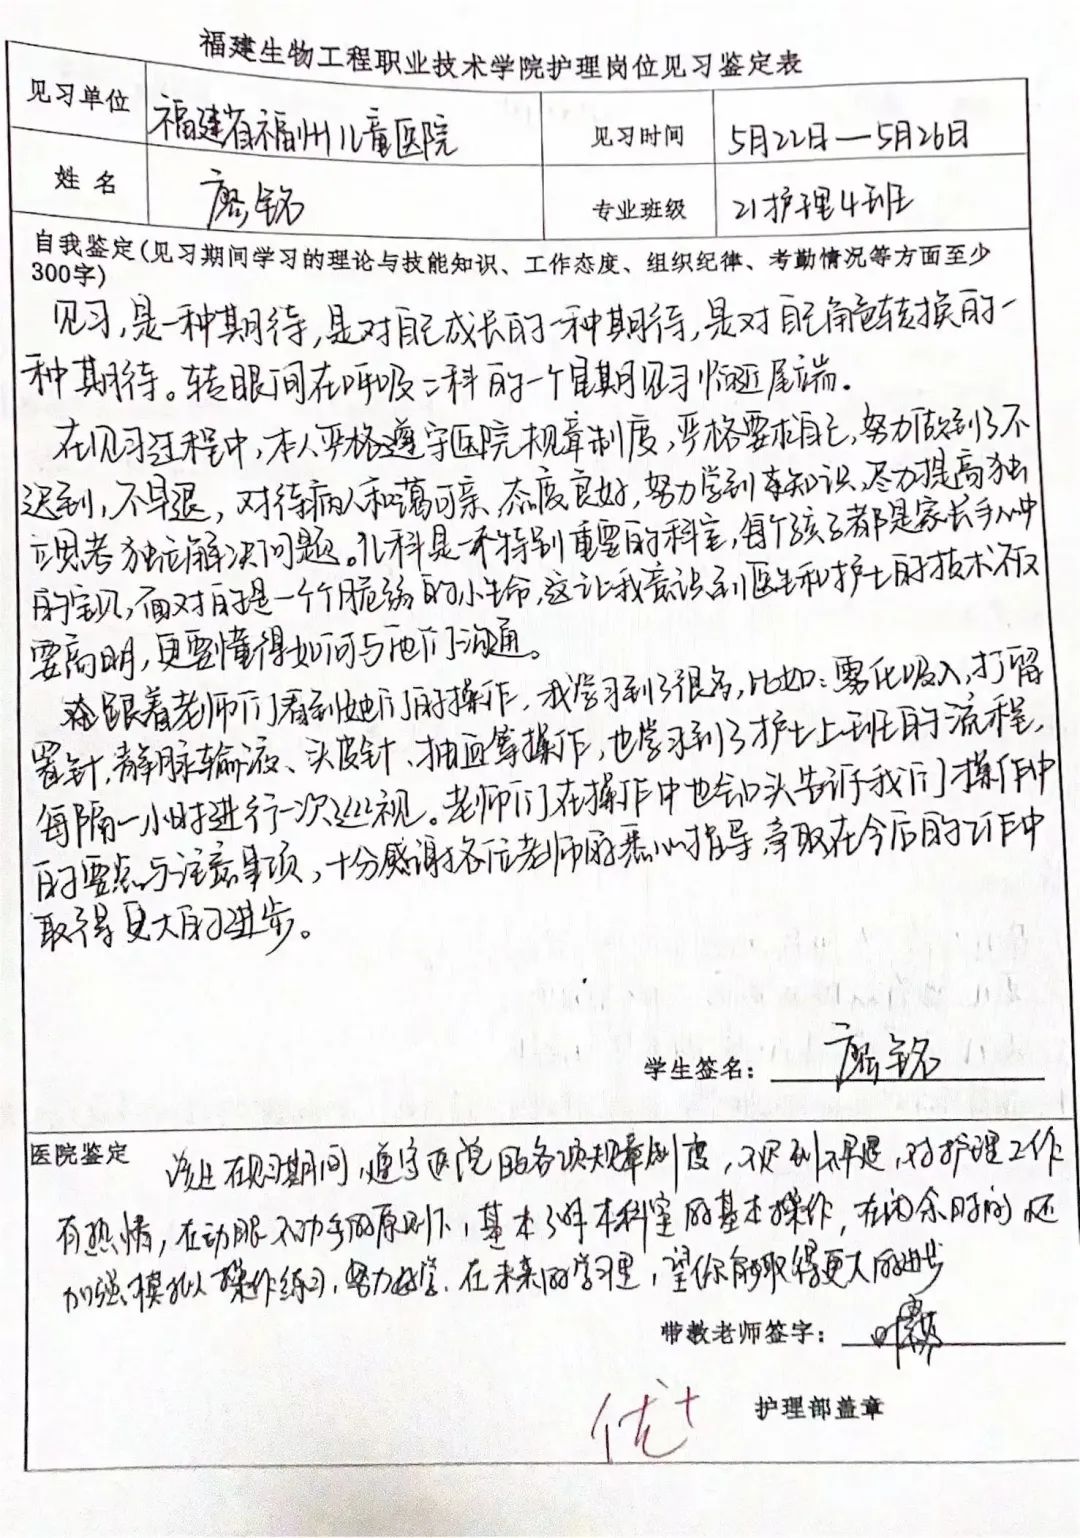 福建生物工程职业技术学院护理岗位见习鉴定表
见习单位 福建省福州儿童医院 见习时间 5月22日—5月26日
姓名 廖铭 专业班级 21护理4班
自我鉴定(见习期间学习的理论与技能知识、工作态度、组织纪律、考勤情况等方面至少
300字)
见习,是一种期待,是对自己成长的一种期待,是对自己角色转换的一
种期待。转眼间在呼吸二科的一个星期见习临近尾端.
在见习过程中,本人严格遵守医院规章制度,严格要求自己,努力做到了不
迟到,不早退,对待病人和蔼可亲,态度良好,努力学到本知识,尽力提高独
立思考独立解决问题。儿科是一科特别重要的科室,每个孩子都是家长手心中
的宝贝,面对的是一个个脆弱的小生命,这让我意识到医生和护士的技术不仅
要高明,更要懂得如何与他们沟通。
跟着老师们看到她们的操作,我学习到了很多,比如:雾化吸入,打留
置针,静脉输液、头皮针、抽血等操作,也学习到了护士上班的流程,
每隔一小时进行一次巡视。老师们在操作中也会口头告诉我们操作中
的要点与注意事项,十分感谢各位老师的悉心指导,争取在今后的工作中
取得更大的进步。
学生签名: 廖铭
医院鉴定
该生在见习期间,遵守医院的各项规章制度,不迟到不早退,对护理工作
有热情,在动眼不动手的原则下,基本了解本科室的基本操作,在闲余时间,还
加强模拟人操作练习,努力好学.在未来的学习里,望你能取得更大的进步
带教老师签字:
优+ 护理部盖章